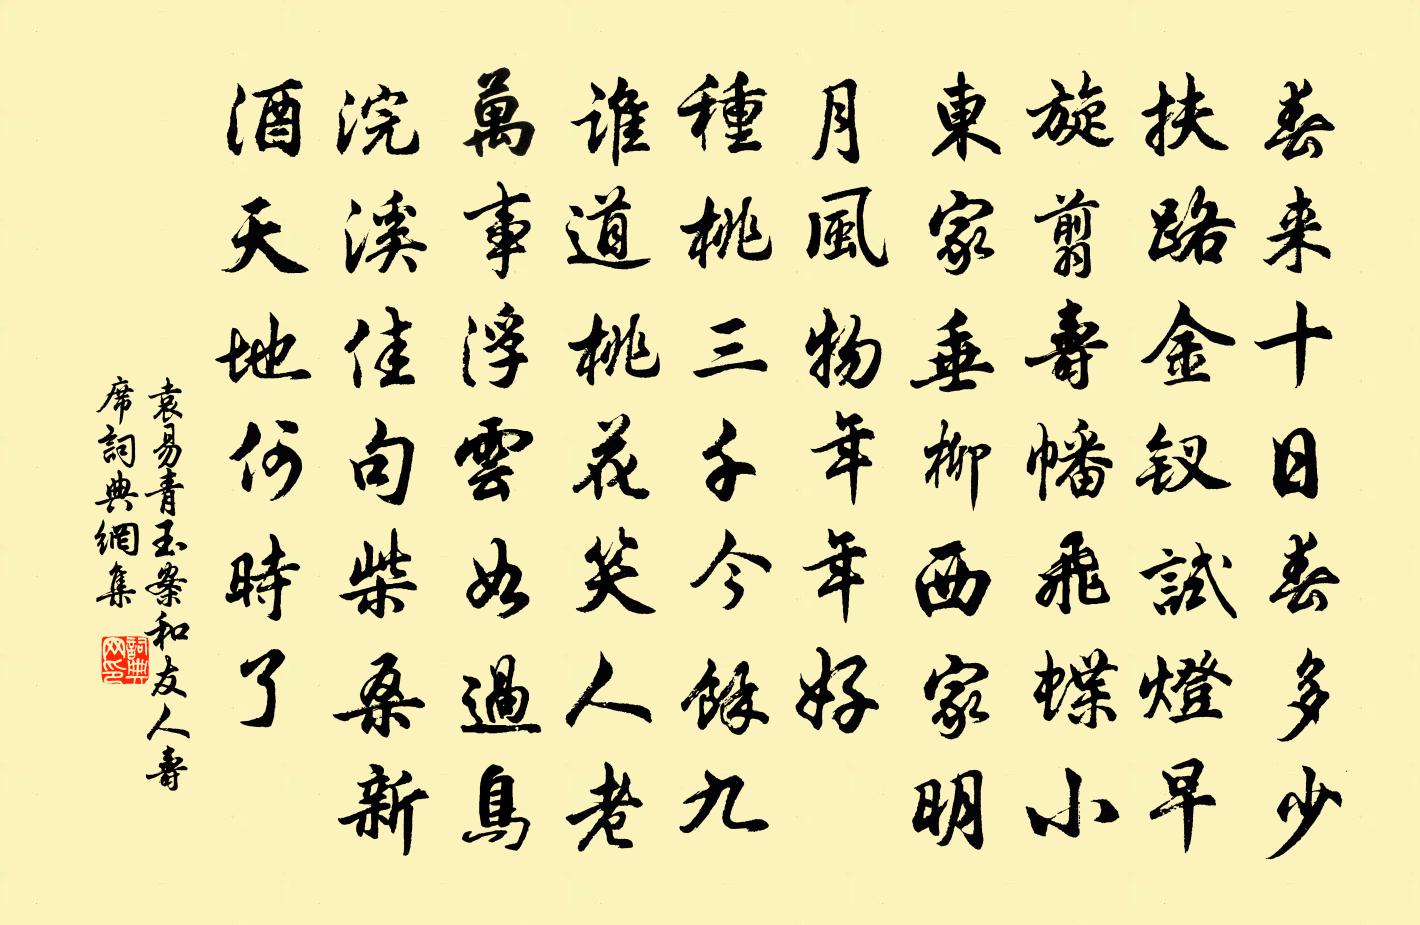 春来十日春多少
扶路金釵試燈早
旋翦壽幡飛蝶小
東家垂柳西家明
月風物年年好
種桃三千今餘九
誰道桃花笑人老
萬事浮雲如過鳥
浣溪佳句柴桑新
酒天地何時了
袁易青玉案和友人壽
席詞典網集
詞典
网印